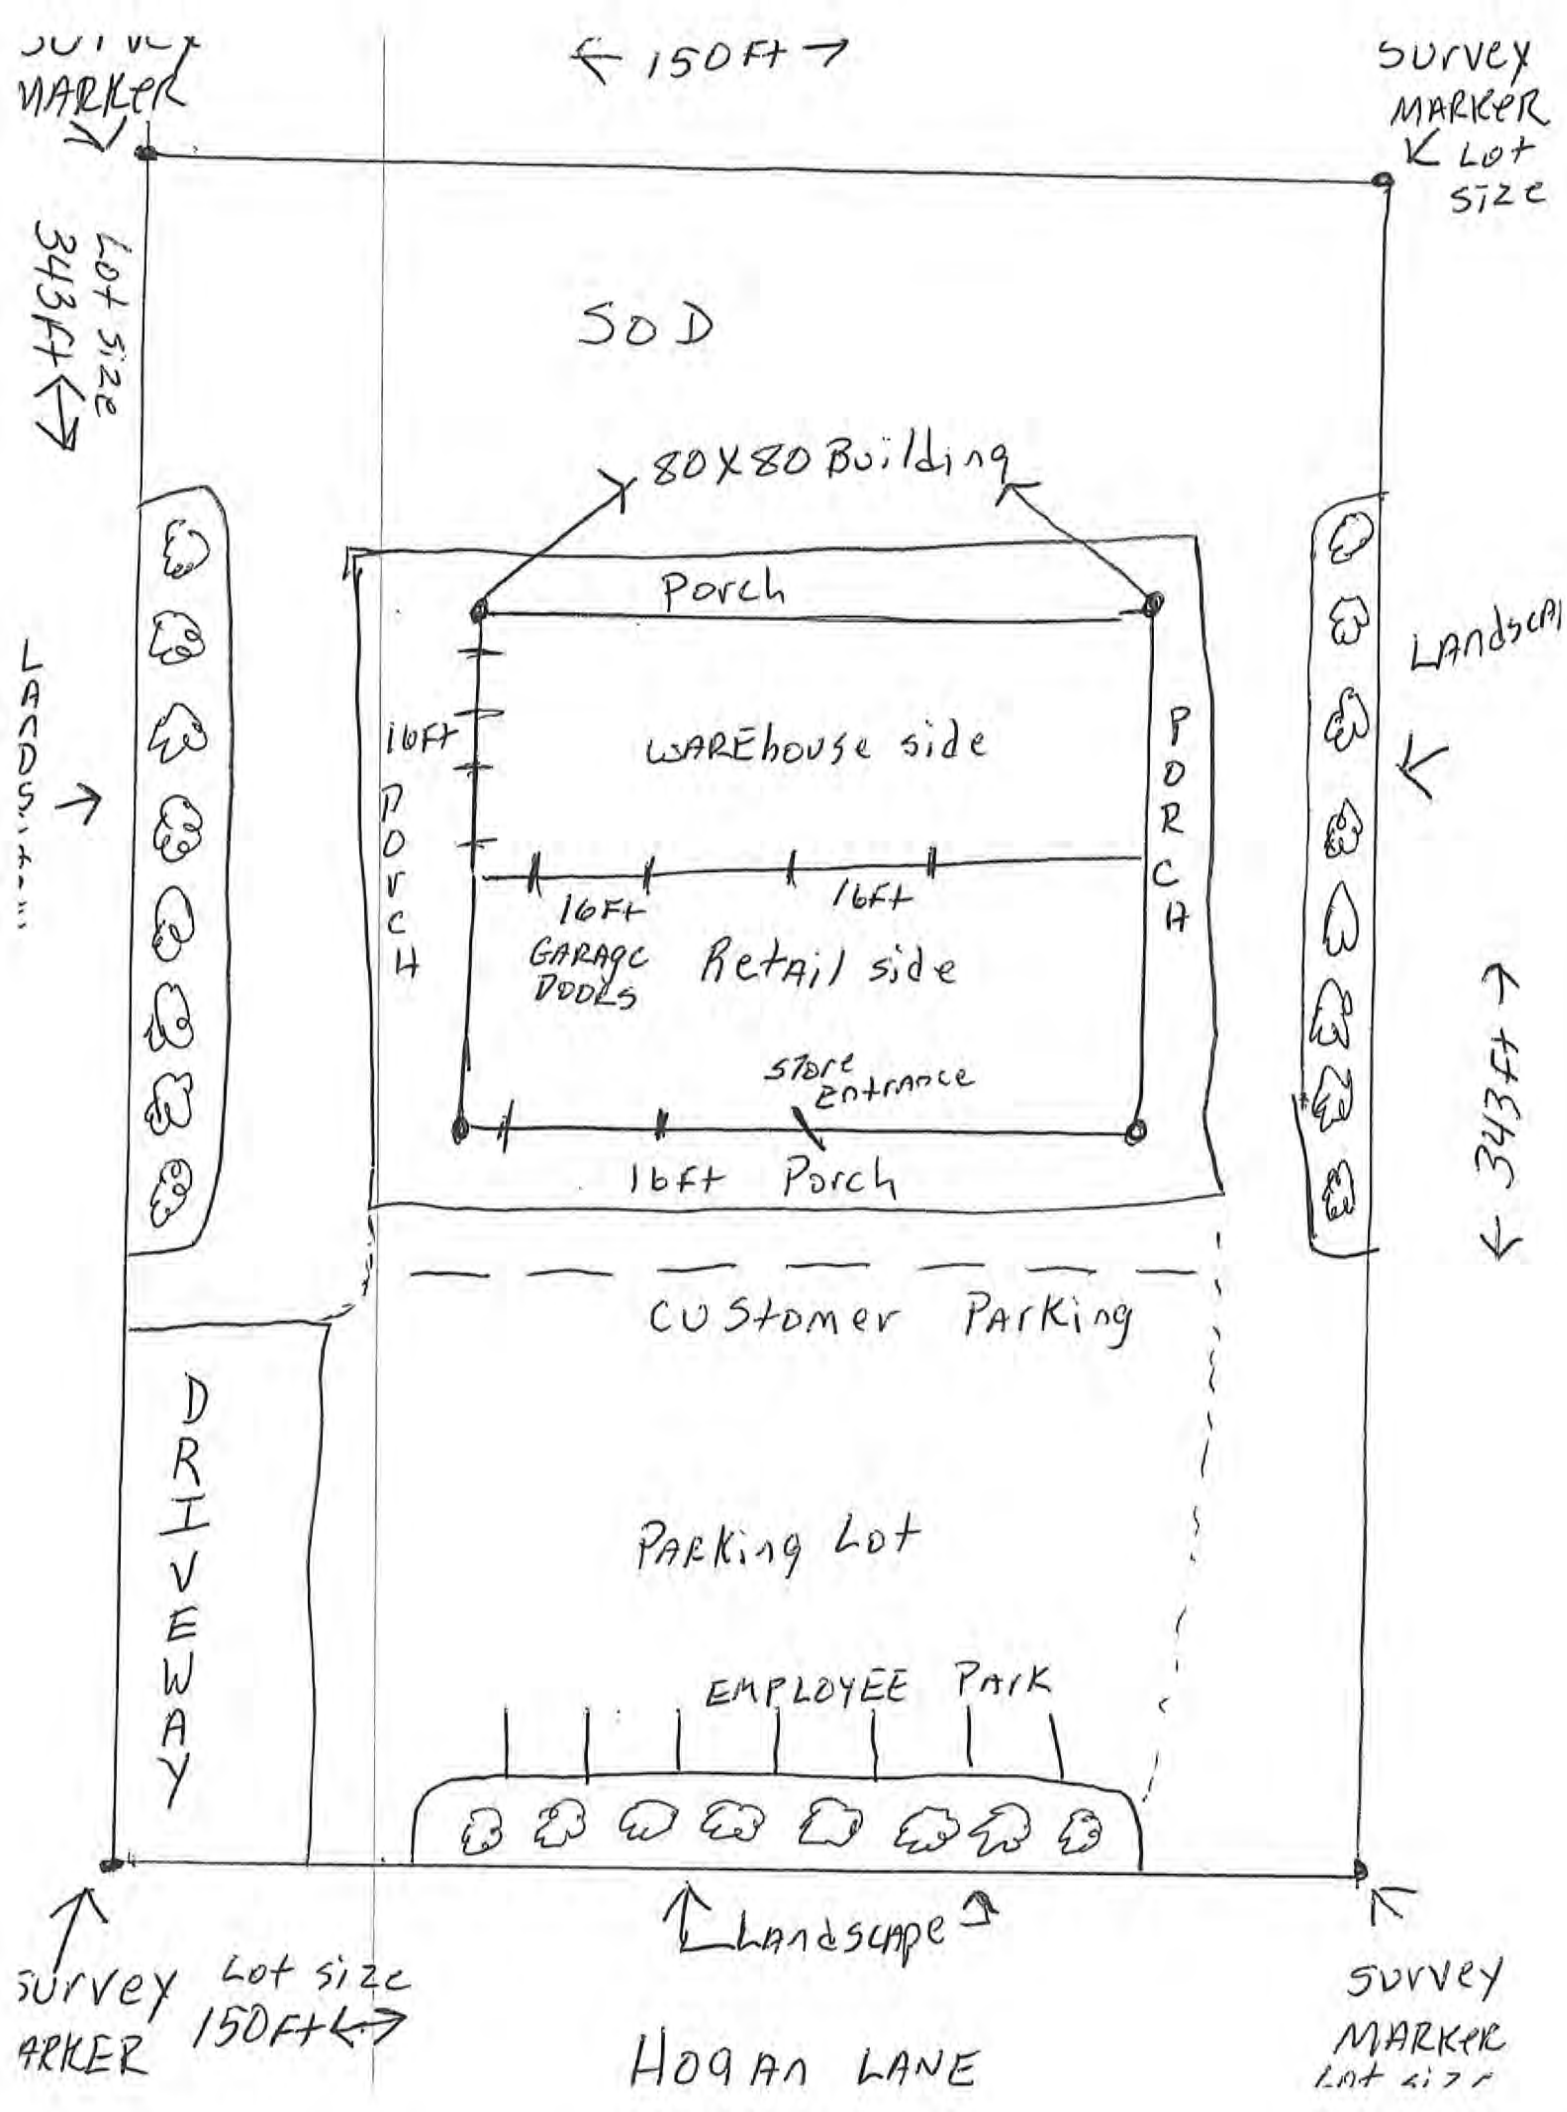 MARKER
← 150Ft →
SURVEY
MARKER
Lot
size
Lot size
343Ft
SOD
80X80 Building
Porch
16Ft
PORCH
WAREhouse side
PORCH
16Ft
GARAGE
DOORS
16Ft
Retail side
Store
Entrance
16Ft Porch
343Ft
CUStomer Parking
DRIVEWAY
Parking Lot
EMPLOYEE PArK
Landscape
Lot size
150Ft
SURVEY
MARKER
HOgAn LANE